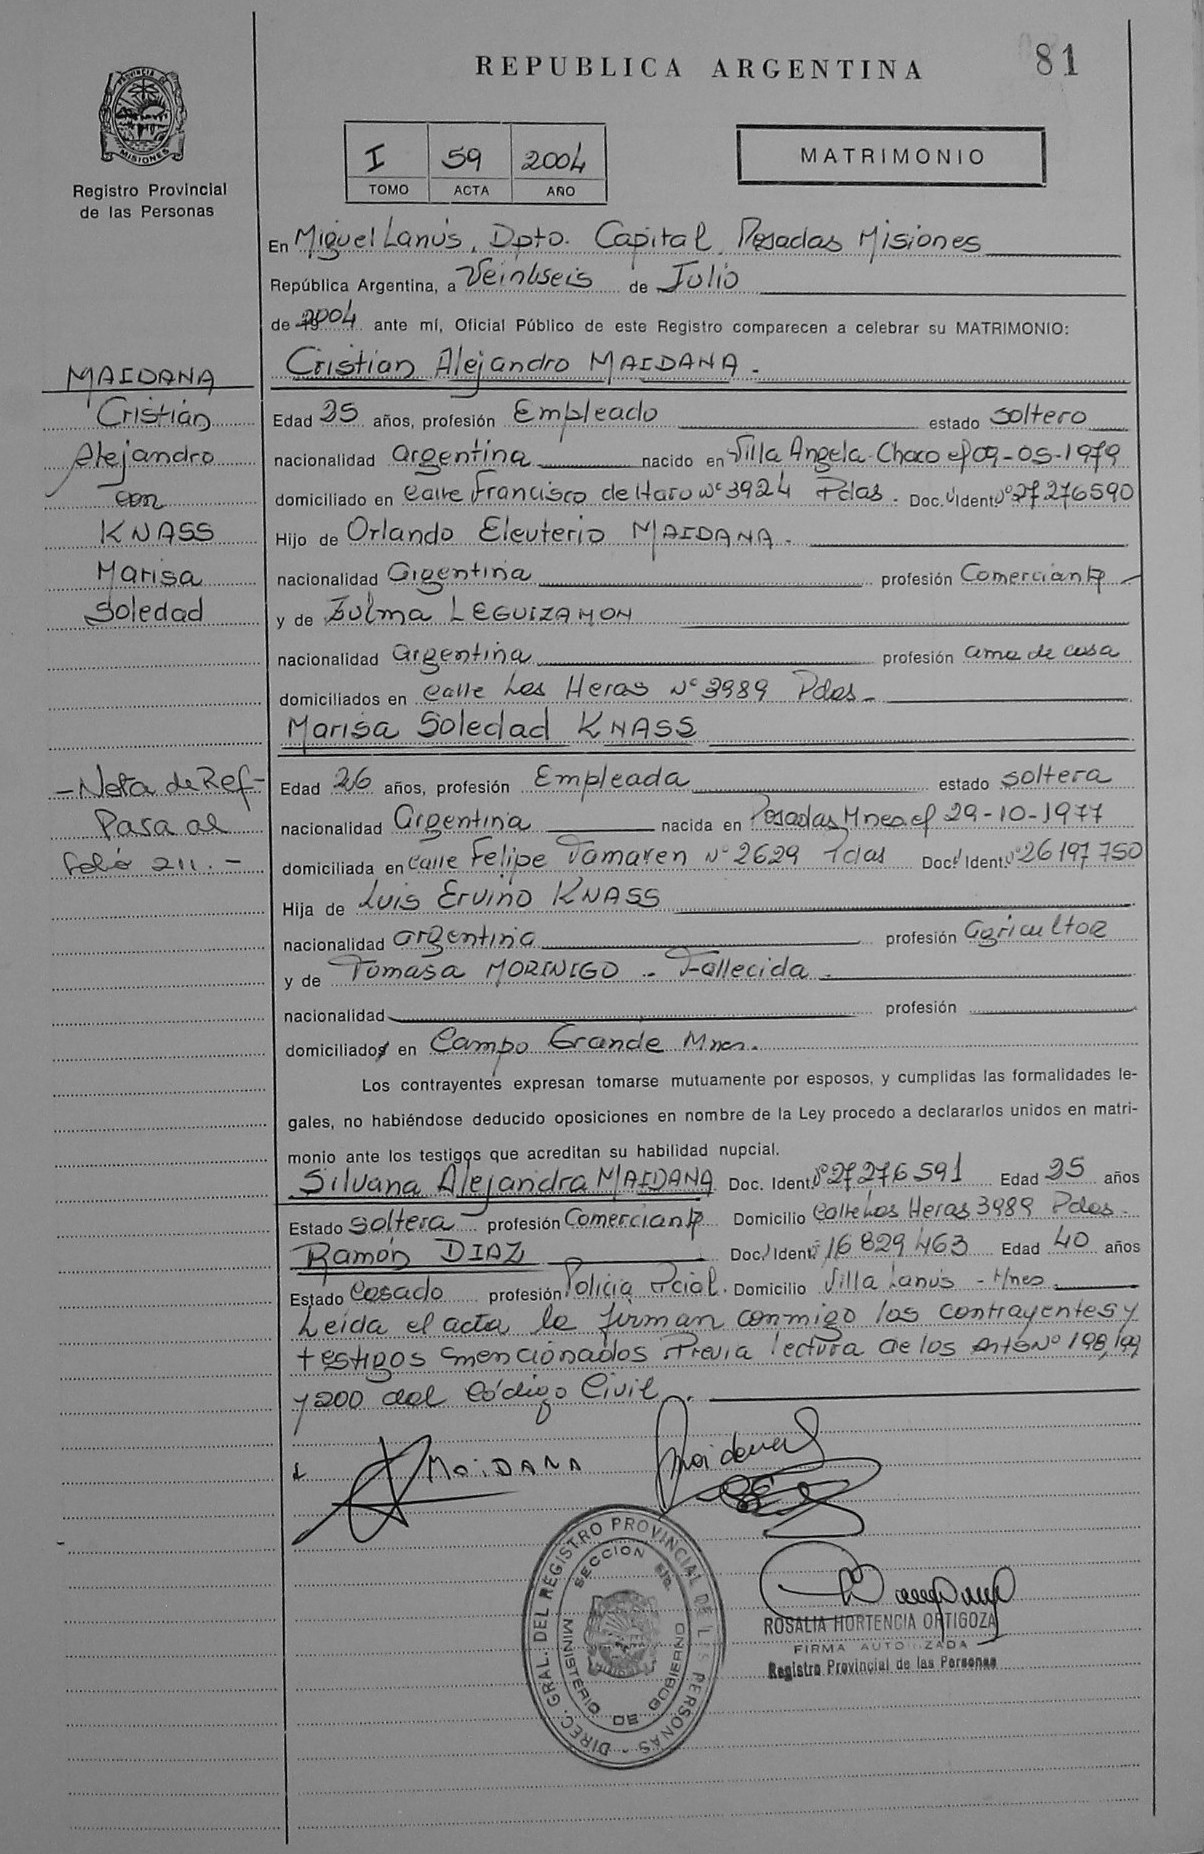 REPUBLICA ARGENTINA
81
PROVINCIA DE
MISIONES
Registro Provincial
de las Personas
I 59 2004
TOMO ACTA AÑO
MATRIMONIO
En Miguel Lanús, Dpto. Capital Posadas Misiones
República Argentina, a Veintiseis de Julio
de 2004 ante mí, Oficial Público de este Registro comparecen a celebrar su MATRIMONIO:
Cristian Alejandro MAIDANA.
MAIDANA
Cristián
Alejandro
con
KNASS
Marisa
Soledad
Edad 25 años, profesión Empleado estado soltero
nacionalidad argentina nacido en Villa Angela Chaco el 09-05-1979
domiciliado en calle Francisco de Haro Nº 3924 Pdas. Doc. Ident. Nº 27276590
Hijo de Orlando Eleuterio MAIDANA.
nacionalidad argentina profesión Comerciante
y de Zulma LEGUIZAMON
nacionalidad argentina profesión ama de casa
domiciliados en calle Las Heras Nº 3989 Pdas
Marisa Soledad KNASS
- Nota de Ref-
Pasa al
folio 211.-
Edad 26 años, profesión Empleada estado soltera
nacionalidad argentina nacida en Posadas Mnes el 29-10-1977
domiciliada en calle Felipe Tamaren Nº 2629 Pdas Doc. Ident. Nº 26197750
Hija de Luis Ervino KNASS
nacionalidad argentina profesión agricultor
y de Tomasa MORINIGO - Fallecida
nacionalidad profesión
domiciliados en Campo Grande Mnes.
Los contrayentes expresan tomarse mutuamente por esposos, y cumplidas las formalidades le-
gales, no habiéndose deducido oposiciones en nombre de la Ley procedo a declararlos unidos en matri-
monio ante los testigos que acreditan su habilidad nupcial.
Silvana Alejandra MAIDANA Doc. Ident. Nº 27276591 Edad 25 años
Estado soltera profesión Comerciante Domicilio Calle Las Heras 3989 Pdas.
Ramón DIAZ Doc. Ident. 16829463 Edad 40 años
Estado Casado profesión Policía Pcial. Domicilio Villa Lanús - Mnes.
Leída el acta la firman conmigo los contrayentes y
testigos mencionados Previa lectura de los Arts Nº 198,199
y 200 del Código Civil.
MAIDANA
Maidana
DIREC. GRAL. DEL REGISTRO PROVINCIAL DE LAS PERSONAS
SECCION
MINISTERIO DE GOBIERNO
ROSALIA HORTENCIA ORTIGOZA
FIRMA AUTORIZADA
Registro Provincial de las Personas